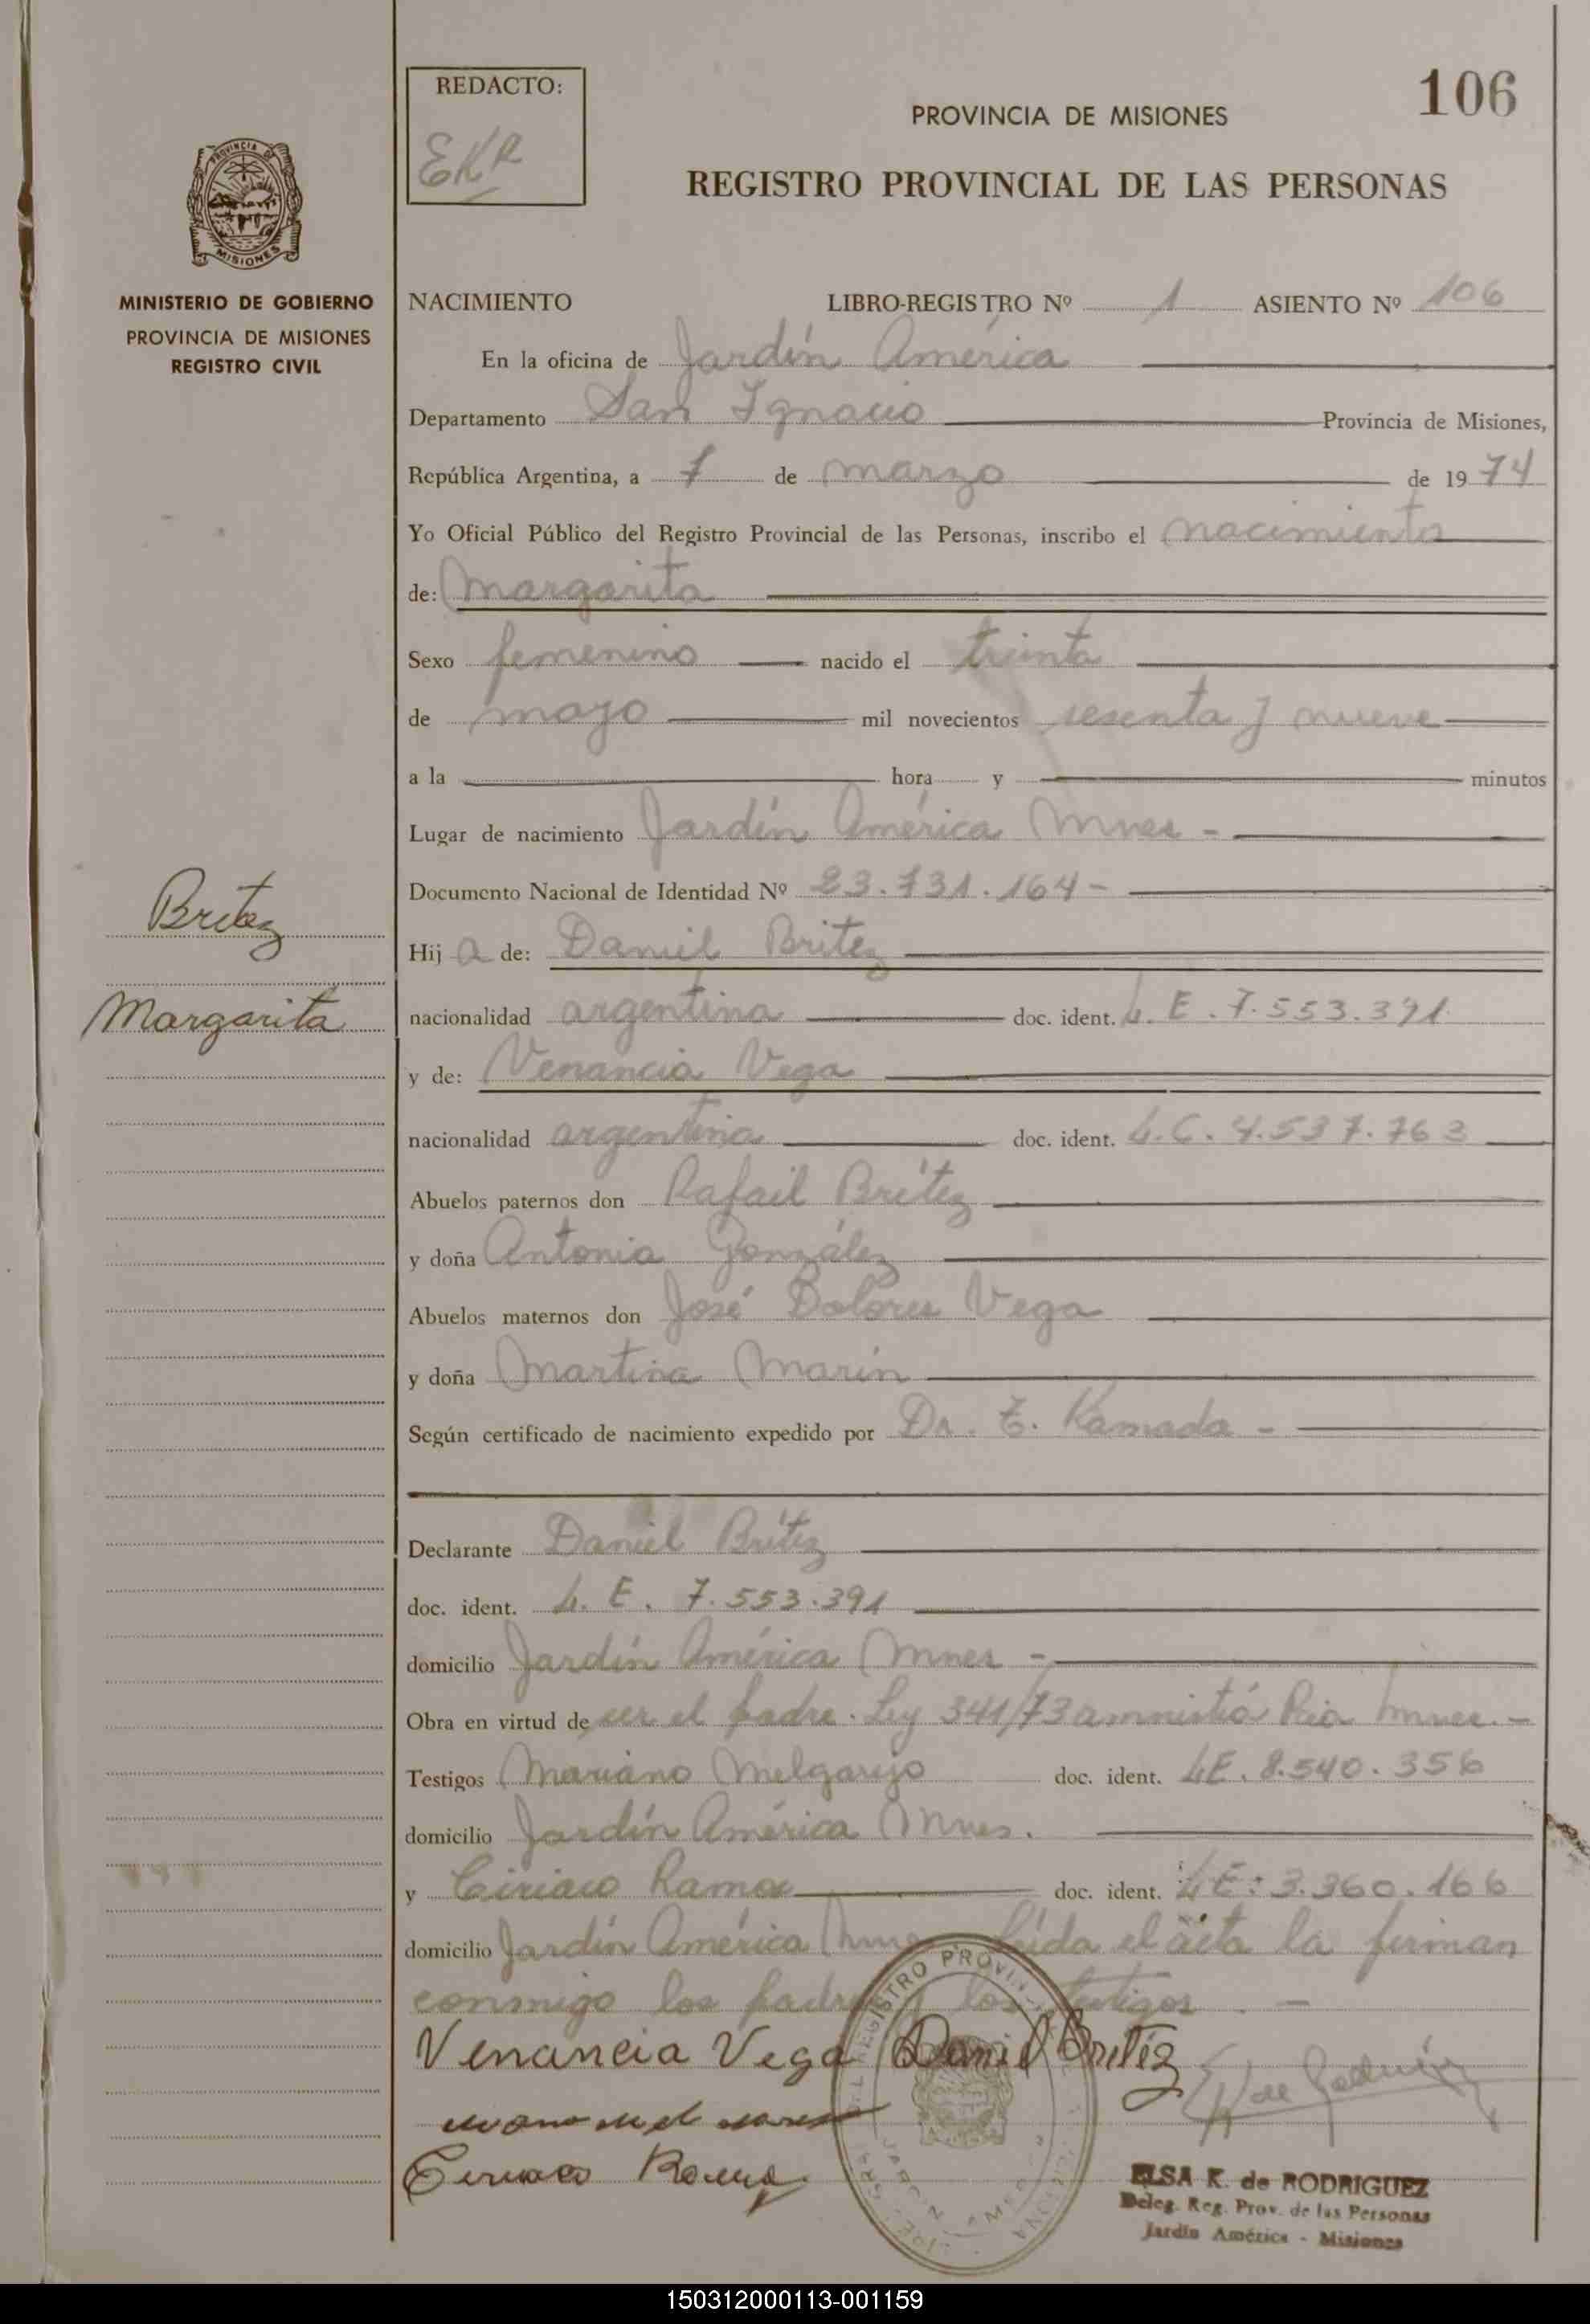 106
REDACTO:
EKR
PROVINCIA DE MISIONES
REGISTRO PROVINCIAL DE LAS PERSONAS
PROVINCIA DE
MISIONES
MINISTERIO DE GOBIERNO
PROVINCIA DE MISIONES
REGISTRO CIVIL
NACIMIENTO LIBRO-REGISTRO Nº 1 ASIENTO Nº 106
En la oficina de Jardín América
Departamento San Ignacio Provincia de Misiones,
República Argentina, a 7 de marzo de 1974
Yo Oficial Público del Registro Provincial de las Personas, inscribo el nacimiento
de: Margarita
Sexo femenino nacido el treinta
de mayo mil novecientos sesenta y nueve
a la hora y minutos
Lugar de nacimiento Jardín América Mnes -
Documento Nacional de Identidad Nº 23.731.164-
Britez
Hija de: Daniel Britez
Margarita
nacionalidad argentina doc. ident. L. E. 7.553.391
y de: Venancia Vega
nacionalidad argentina doc. ident. L.C. 4.537.763
Abuelos paternos don Rafael Britez
y doña Antonia González
Abuelos maternos don José Dolores Vega
y doña Martina Marin
Según certificado de nacimiento expedido por Dr. T. Kamada -
Declarante Daniel Britez
doc. ident. L. E. 7.553.391
domicilio Jardín América Mnes -
Obra en virtud de ser el padre. Ley 341/73 Mnes. -
Testigos Mariano Melgarejo doc. ident. LE. 8.540.356
domicilio Jardín América Mnes.
y Ciriaco Ramos doc. ident. LE: 3.360.166
domicilio Jardín América Leída el acta la firman
conmigo los padres y los testigos. -
Venancia Vega Daniel Britez
ELSA K. de RODRIGUEZ
Deleg. Reg. Prov. de las Personas
Jardín América - Misiones
150312000113-001159